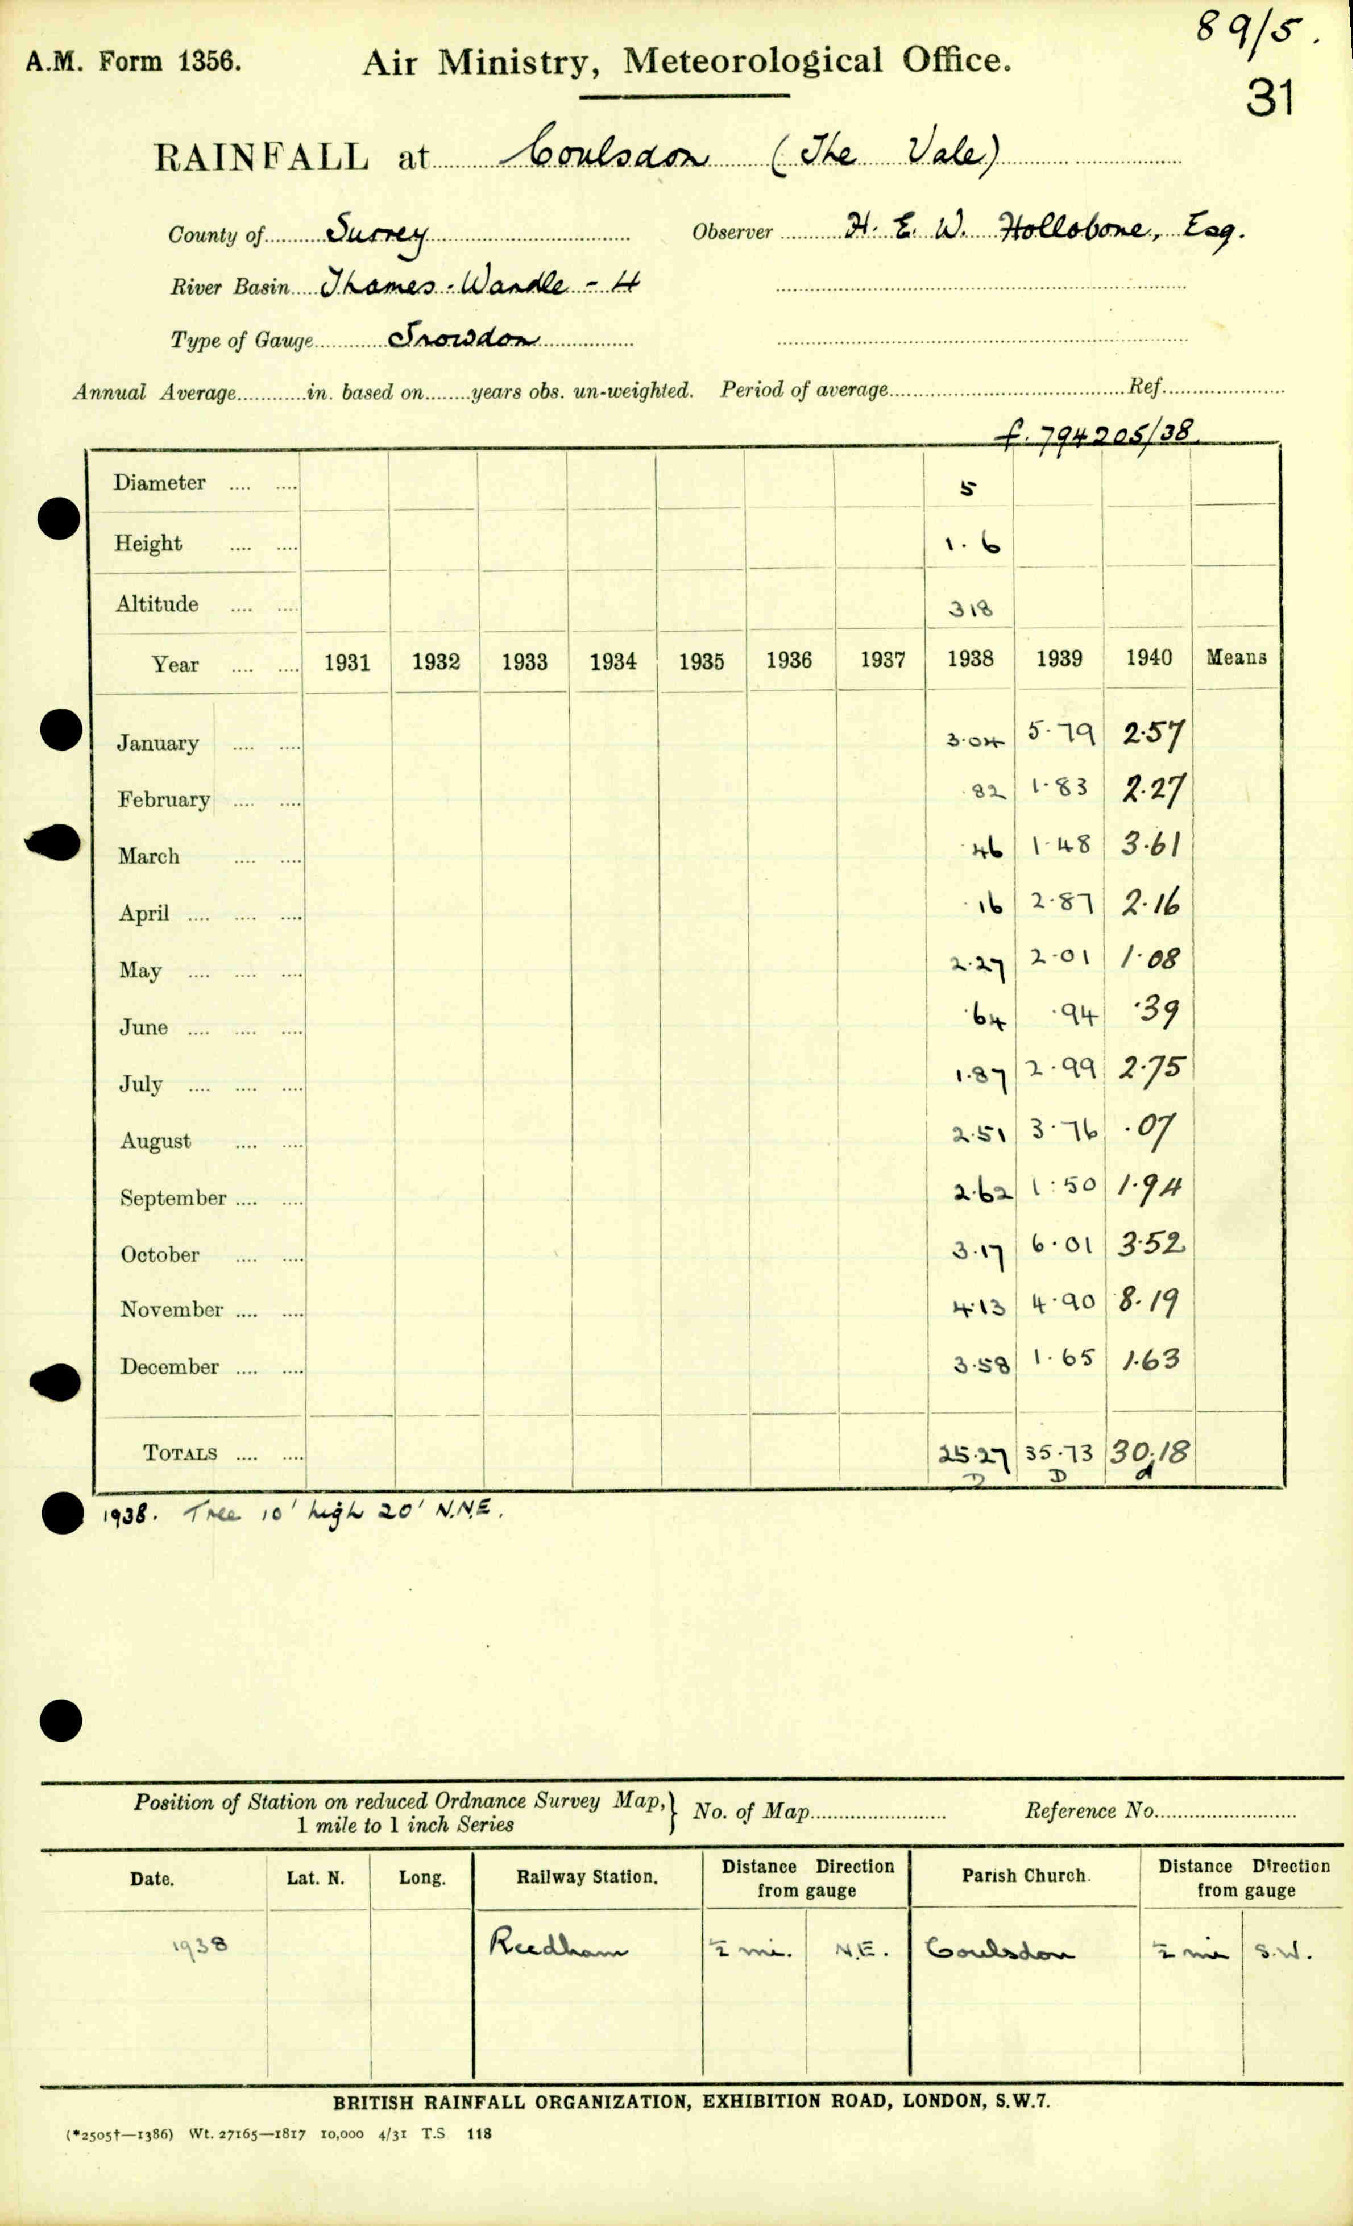 89/5.
A.M. Form 1356. Air Ministry, Meteorological Office.
31
RAINFALL at Coulsdon (The Vale)
County of Surrey Observer H. E. W. Hollobone, Esq.
River Basin Thames - Wandle - 4
Type of Gauge Snowdon
Annual Average in. based on years obs. un-weighted. Period of average Ref.
f. 794205/38
Diameter 5
Height 1.6
Altitude 318
Year 1931 1932 1933 1934 1935 1936 1937 1938 1939 1940 Means
January 3.04 5.79 2.57
February .82 1.83 2.27
March .46 1.48 3.61
April .16 2.87 2.16
May 2.27 2.01 1.08
June .64 .94 .39
July 1.87 2.99 2.75
August 2.51 3.76 .07
September 2.62 1.50 1.94
October 3.17 6.01 3.52
November 4.13 4.90 8.19
December 3.58 1.65 1.63
TOTALS 25.27 35.73 30.18
D D d
1938. Tree 10' high 20' N.N.E.
Position of Station on reduced Ordnance Survey Map, 1 mile to 1 inch Series } No. of Map Reference No.
Date. Lat. N. Long. Railway Station. Distance Direction from gauge Parish Church. Distance Direction from gauge
1938 Reedham ½ mi. N.E. Coulsdon ½ mi S.W.
BRITISH RAINFALL ORGANIZATION, EXHIBITION ROAD, LONDON, S.W.7.
(*2505†—1386) Wt. 27165—1817 10,000 4/31 T.S 118